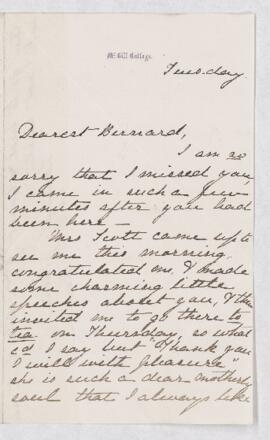 McGill College.
Tuesday
Dearest Bernard,
I am so
sorry that I missed you,
I came in such a few
minutes after you had
been here –
Mrs Scott came up to
see me this morning,
congratulated me, & made
some charming little
speeches about you, & then
invited me to go there to
tea on Thursday, so what
cd I say but "Thank you
I will with pleasure"
she is such a dear motherly
soul that I always like